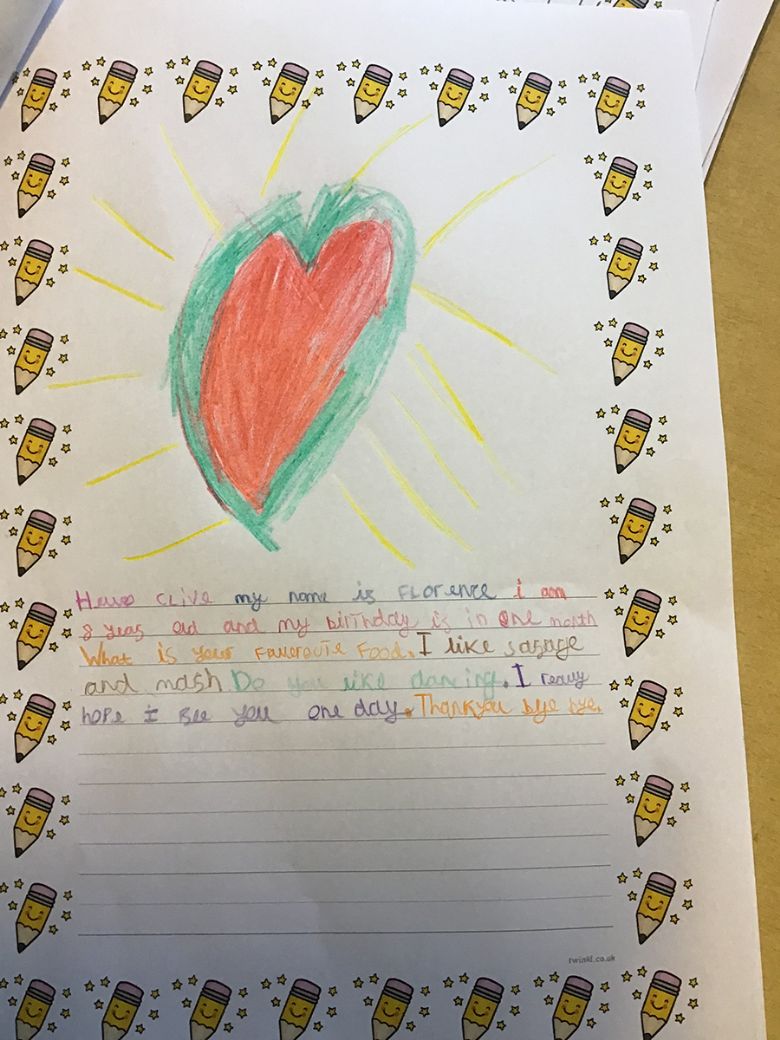 Hello CLive my name is FLorence i am
8 years old and my birthday is in one month
What is your Faveroute Food. I like sasage
and mash Do you like dancing. I really
hope I see you one day. Thankyou bye bye.
twinkl.co.uk